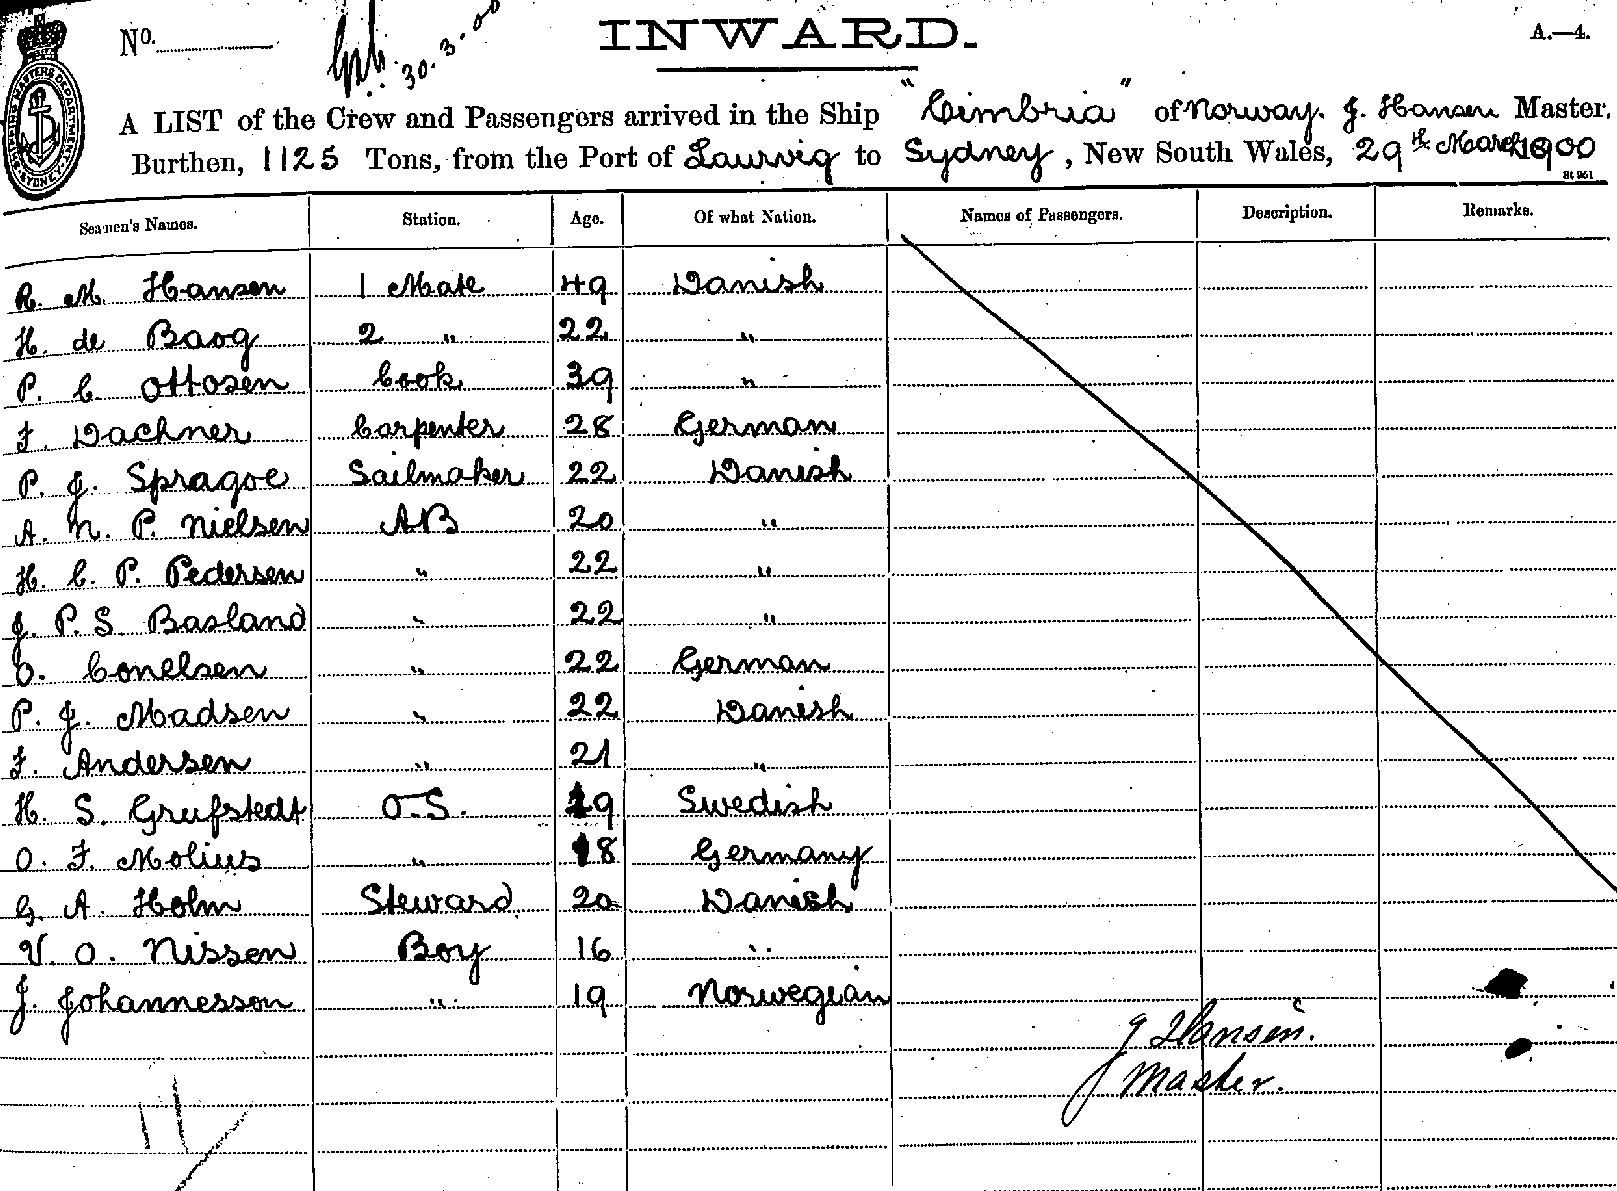 No. 30.3.00 INWARD. A.—4.
SHIPPING MASTERS DEPARTMENT SYDNEY
A LIST of the Crew and Passengers arrived in the Ship "Cimbria" of Norway. J. Hansen Master,
Burthen, 1125 Tons, from the Port of Laurvig to Sydney, New South Wales, 29th March 1900
St 961
Seamen's Names. Station. Age. Of what Nation. Names of Passengers. Description. Remarks.
R. M. Hansen 1 Mate 49 Danish
H. de Baog 2 " 22 "
P. C. Ottosen Cook 39 "
F. Dachner Carpenter 28 German
P. J. Spragoe Sailmaker 22 Danish
A. N. P. Nielsen AB 20 "
H. C. P. Pedersen " 22 "
J. P. S. Basland " 22 "
O. Conelsen " 22 German
P. J. Madsen " 22 Danish
F. Andersen " 21 "
H. S. Grufstedt O.S. 19 Swedish
O. F. Molius " 18 Germany
G. A. Holm Steward 20 Danish
V. O. Nissen Boy 16 "
J. Johannesson " 19 Norwegian
J Hansen.
Master.